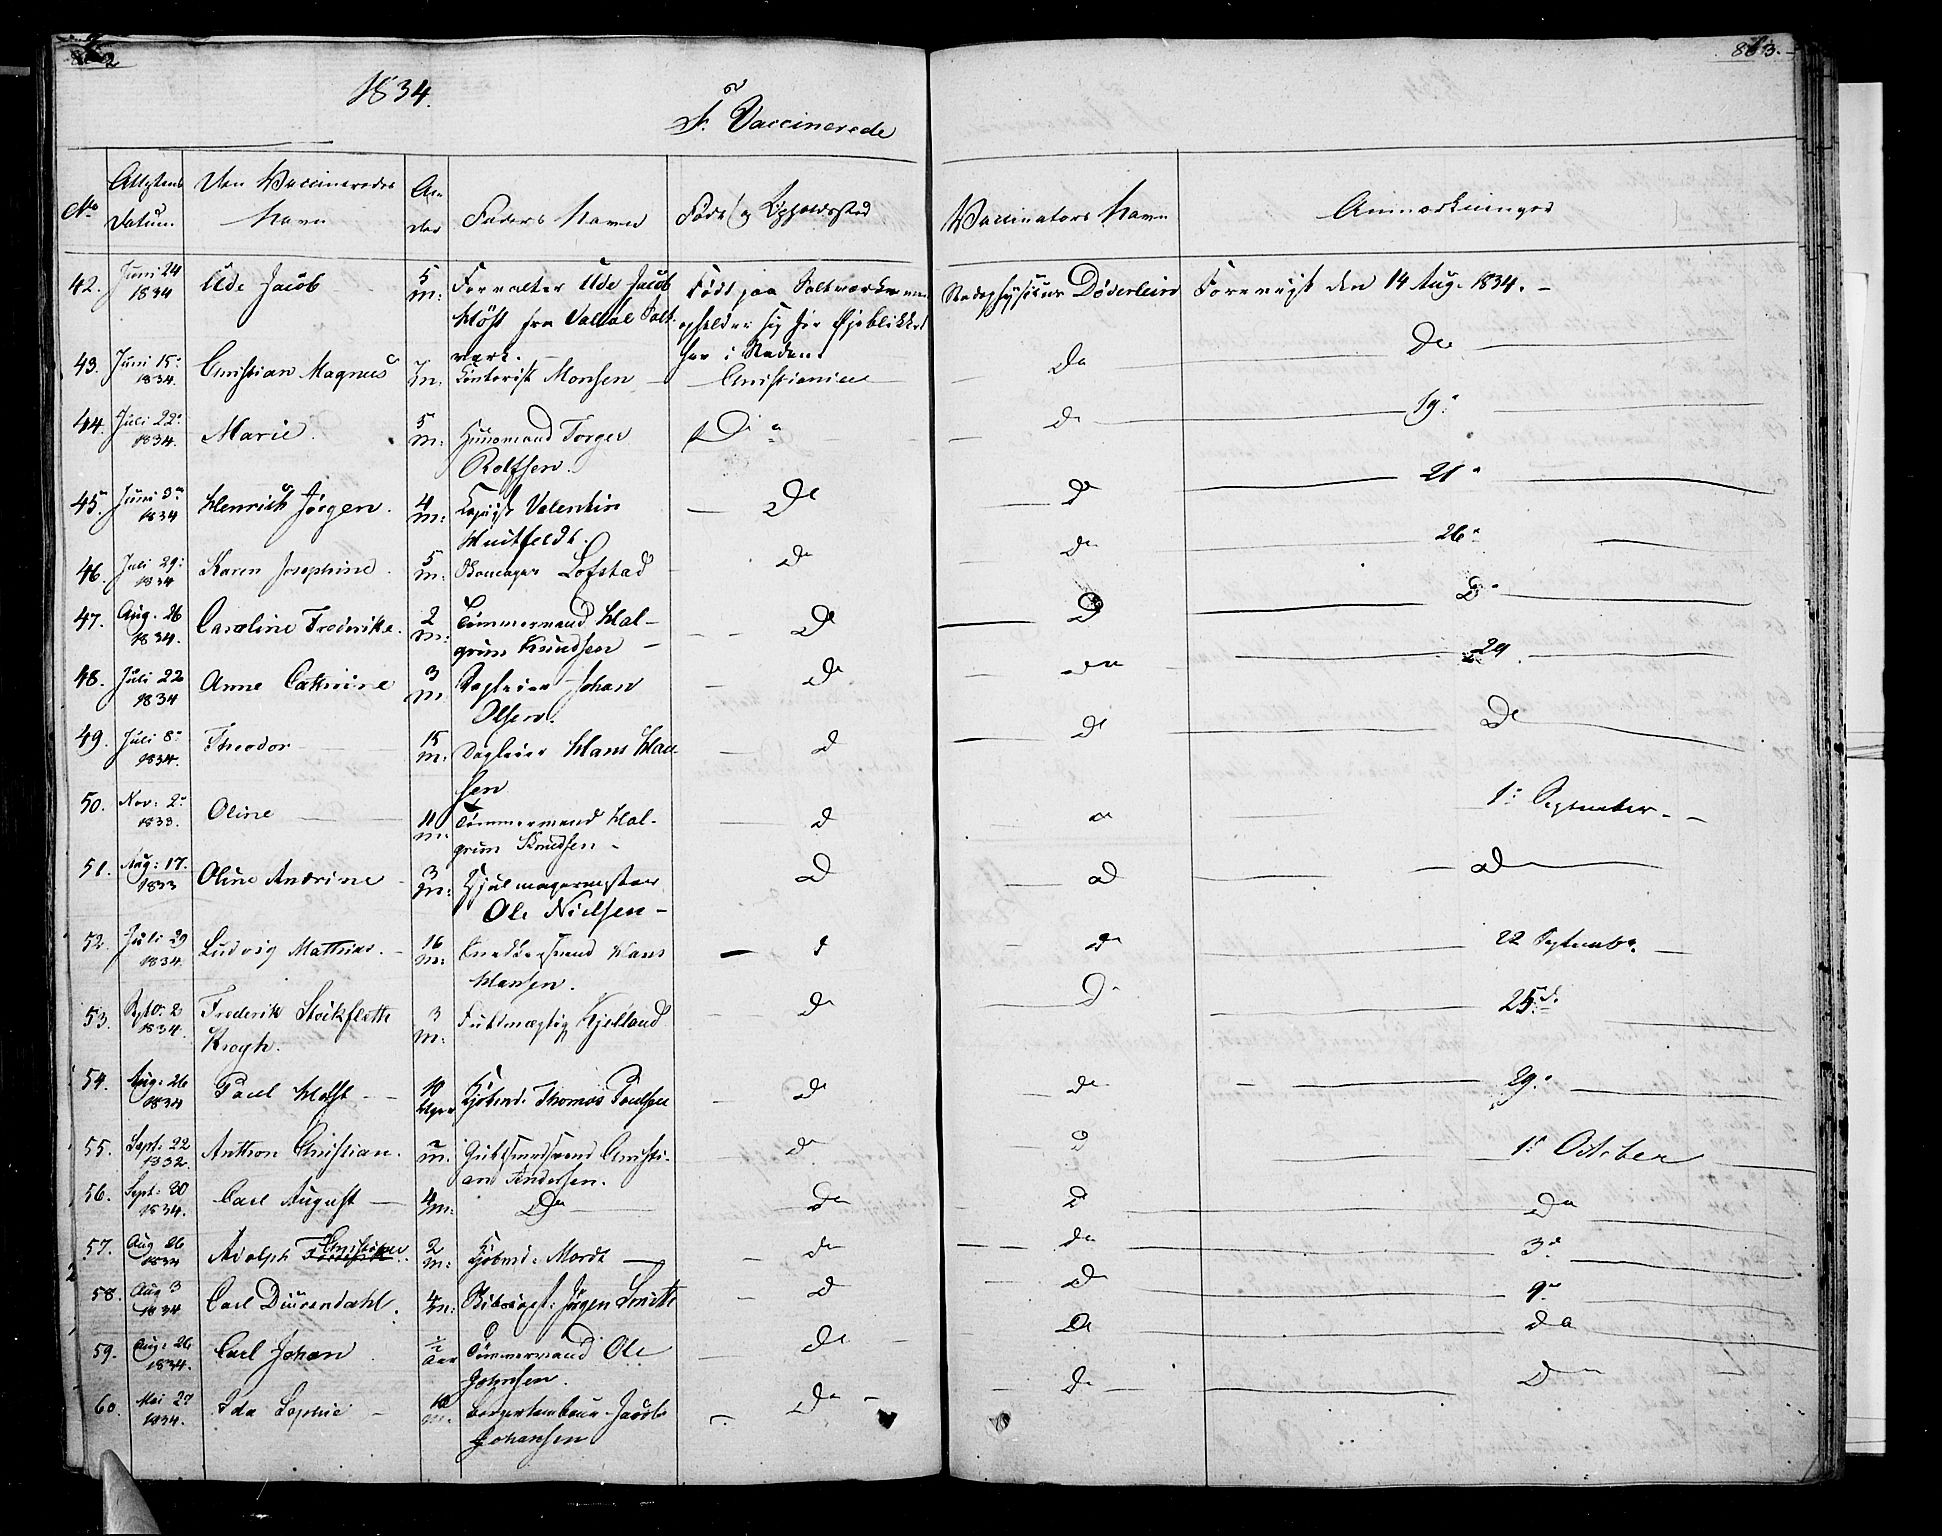 863.
1834.
F. Vaccinerede
No
Attestens Datum.
Den Vaccineredes Navn
Alder
Faders Navn
Føde og Opholdssted
Vaccinators Navn
Anmærkninger
42. Juni 24 1834 Ude Jacob 5 m: Forvalter Ude Jacob Født paa Saltværket men Stadsphysicus Døderlein Foreviist den 14 Aug. 1834. -
Høst fra Valløe Salt- opholder sig for Øjeblikket
værk. her i Staden.
43. Juni 15. 1834. Christian Magnus 7 m: Contorist Monsen - Christiania - Do Do
44. Juli 22. 1834. Marie. 5 m: Huusmand Torger Do Do 19.
Rolfsen.
45. Juni 3. 1834 Henrich Jørgen. 4 m: Copiist Valentin Do Do 21.
Huitfeldt.
46. Juli 29. 1834 Karen Josephine. 5 m: Skomager Lofstad Do Do 26.
47. Aug. 26 1834. Caroline Frederikke. 2 m: Tømmermand Hal- Do Do Do
grim Knudsen -
48. Juli 22 1834 Anne Cathrine 3 m Dagleier Johan Do Do 29.
Olsen.
49. Juli 8. 1834. Theodor 15 m: Dagleier Hans Han- Do Do Do
sen
50. Nov: 2. 1833. Oline 11 m: Tømmermand Hal- Do Do 1. September. -
grim Knudsen -
51. Aug: 17. 1833 Oline Andrine 3 m: Hjulmagermester Do Do Do
Ole Nielsen -
52. Juli 29 1834. Ludvig Mathias. - 16 m: Hans Do Do 22 Septembr.
Hansen.
53. Septr. 2 1834. Frederik Stockfleth 3 m: Fuldmægtig Kjelland Do Do 25.
Krogh.
54. Aug: 26 1834 Paul Holst - 10 Uger Kjøbmd. Thomas Paulsen Do Do 29.
55. Sept: 22 1832. Anthon Christian. 2 m. Guldsmedsvend Christi- Do Do 1. October
an Andersen.
56. Sept: 30 1834. Carl August - 4 m: Do Do Do Do
57. Aug 26 1834 Adolph Christian. 2 m: Kjøbmd. Mordt Do Do 3.
58. Aug 3 1834 Carl Duurendahl. 4 m: Jørgen Smith Do Do 9.
59. Aug: 26 1834. Carl Johan ½ Aar Tømmermand Ole Do Do Do
Johnsen.
60. Mai 27 1834. Ida Sophie - 10 m. Jacob Do - Do Do
Johansen